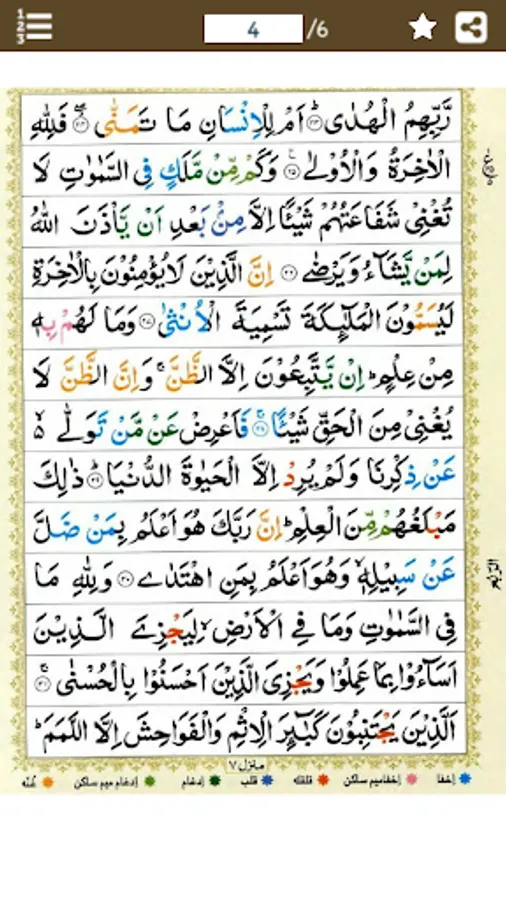 1 2 3
4 /6
رَّبِّهِمُ الْهُدٰى ۟ؕ۲۳ اَمْ لِلْاِنْسَانِ مَا تَمَنّٰى ۟ؗۖ۲۴ فَلِلّٰهِ
الْاٰخِرَةُ وَالْاُوْلٰى ۟۠۲۵ وَكَمْ مِّنْ مَّلَكٍ فِى السَّمٰوٰتِ لَا
تُغْنِىْ شَفَاعَتُهُمْ شَيْـًٔا اِلَّا مِنْۢ بَعْدِ اَنْ يَّاْذَنَ اللّٰهُ
لِمَنْ يَّشَآءُ وَيَرْضٰى ۟۲۶ اِنَّ الَّذِيْنَ لَا يُؤْمِنُوْنَ بِالْاٰخِرَةِ
لَيُسَمُّوْنَ الْمَلٰٓئِكَةَ تَسْمِيَةَ الْاُنْثٰى ۟۲۷ وَمَا لَهُمْ بِهٖ
مِنْ عِلْمٍ ؕ اِنْ يَّتَّبِعُوْنَ اِلَّا الظَّنَّ ۚ وَاِنَّ الظَّنَّ لَا
يُغْنِىْ مِنَ الْحَقِّ شَيْـًٔا ۟ۚ۲۸ فَاَعْرِضْ عَنْ مَّنْ تَوَلّٰى ۙ۬
عَنْ ذِكْرِنَا وَلَمْ يُرِدْ اِلَّا الْحَيٰوةَ الدُّنْيَا ۟ؕ۲۹ ذٰلِكَ
مَبْلَغُهُمْ مِّنَ الْعِلْمِ ؕ اِنَّ رَبَّكَ هُوَ اَعْلَمُ بِمَنْ ضَلَّ
عَنْ سَبِيْلِهٖ ۙ وَهُوَ اَعْلَمُ بِمَنِ اهْتَدٰى ۟۳۰ وَلِلّٰهِ مَا
فِى السَّمٰوٰتِ وَمَا فِى الْاَرْضِ ۙ لِيَجْزِىَ الَّذِيْنَ
اَسَآءُوْا بِمَا عَمِلُوْا وَيَجْزِىَ الَّذِيْنَ اَحْسَنُوْا بِالْحُسْنٰى ۟ۚ۳۱
اَلَّذِيْنَ يَجْتَنِبُوْنَ كَبٰٓئِرَ الْاِثْمِ وَالْفَوَاحِشَ اِلَّا اللَّمَمَ ؕ
منزل ۷
إخفا إخفا میم ساکن قلقله قلب إدغام إدغام میم ساکن غُنّه